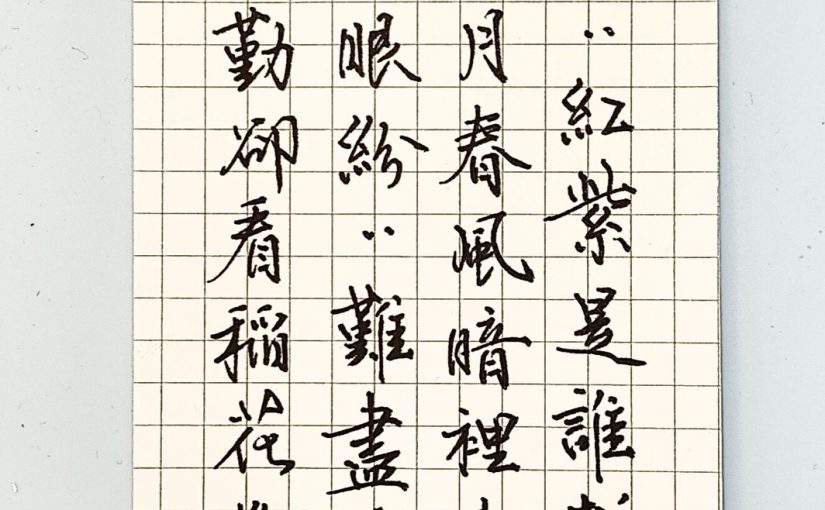 〻紅紫是誰
月春風暗裡
眼紛〻難盡
勤卻看稻花